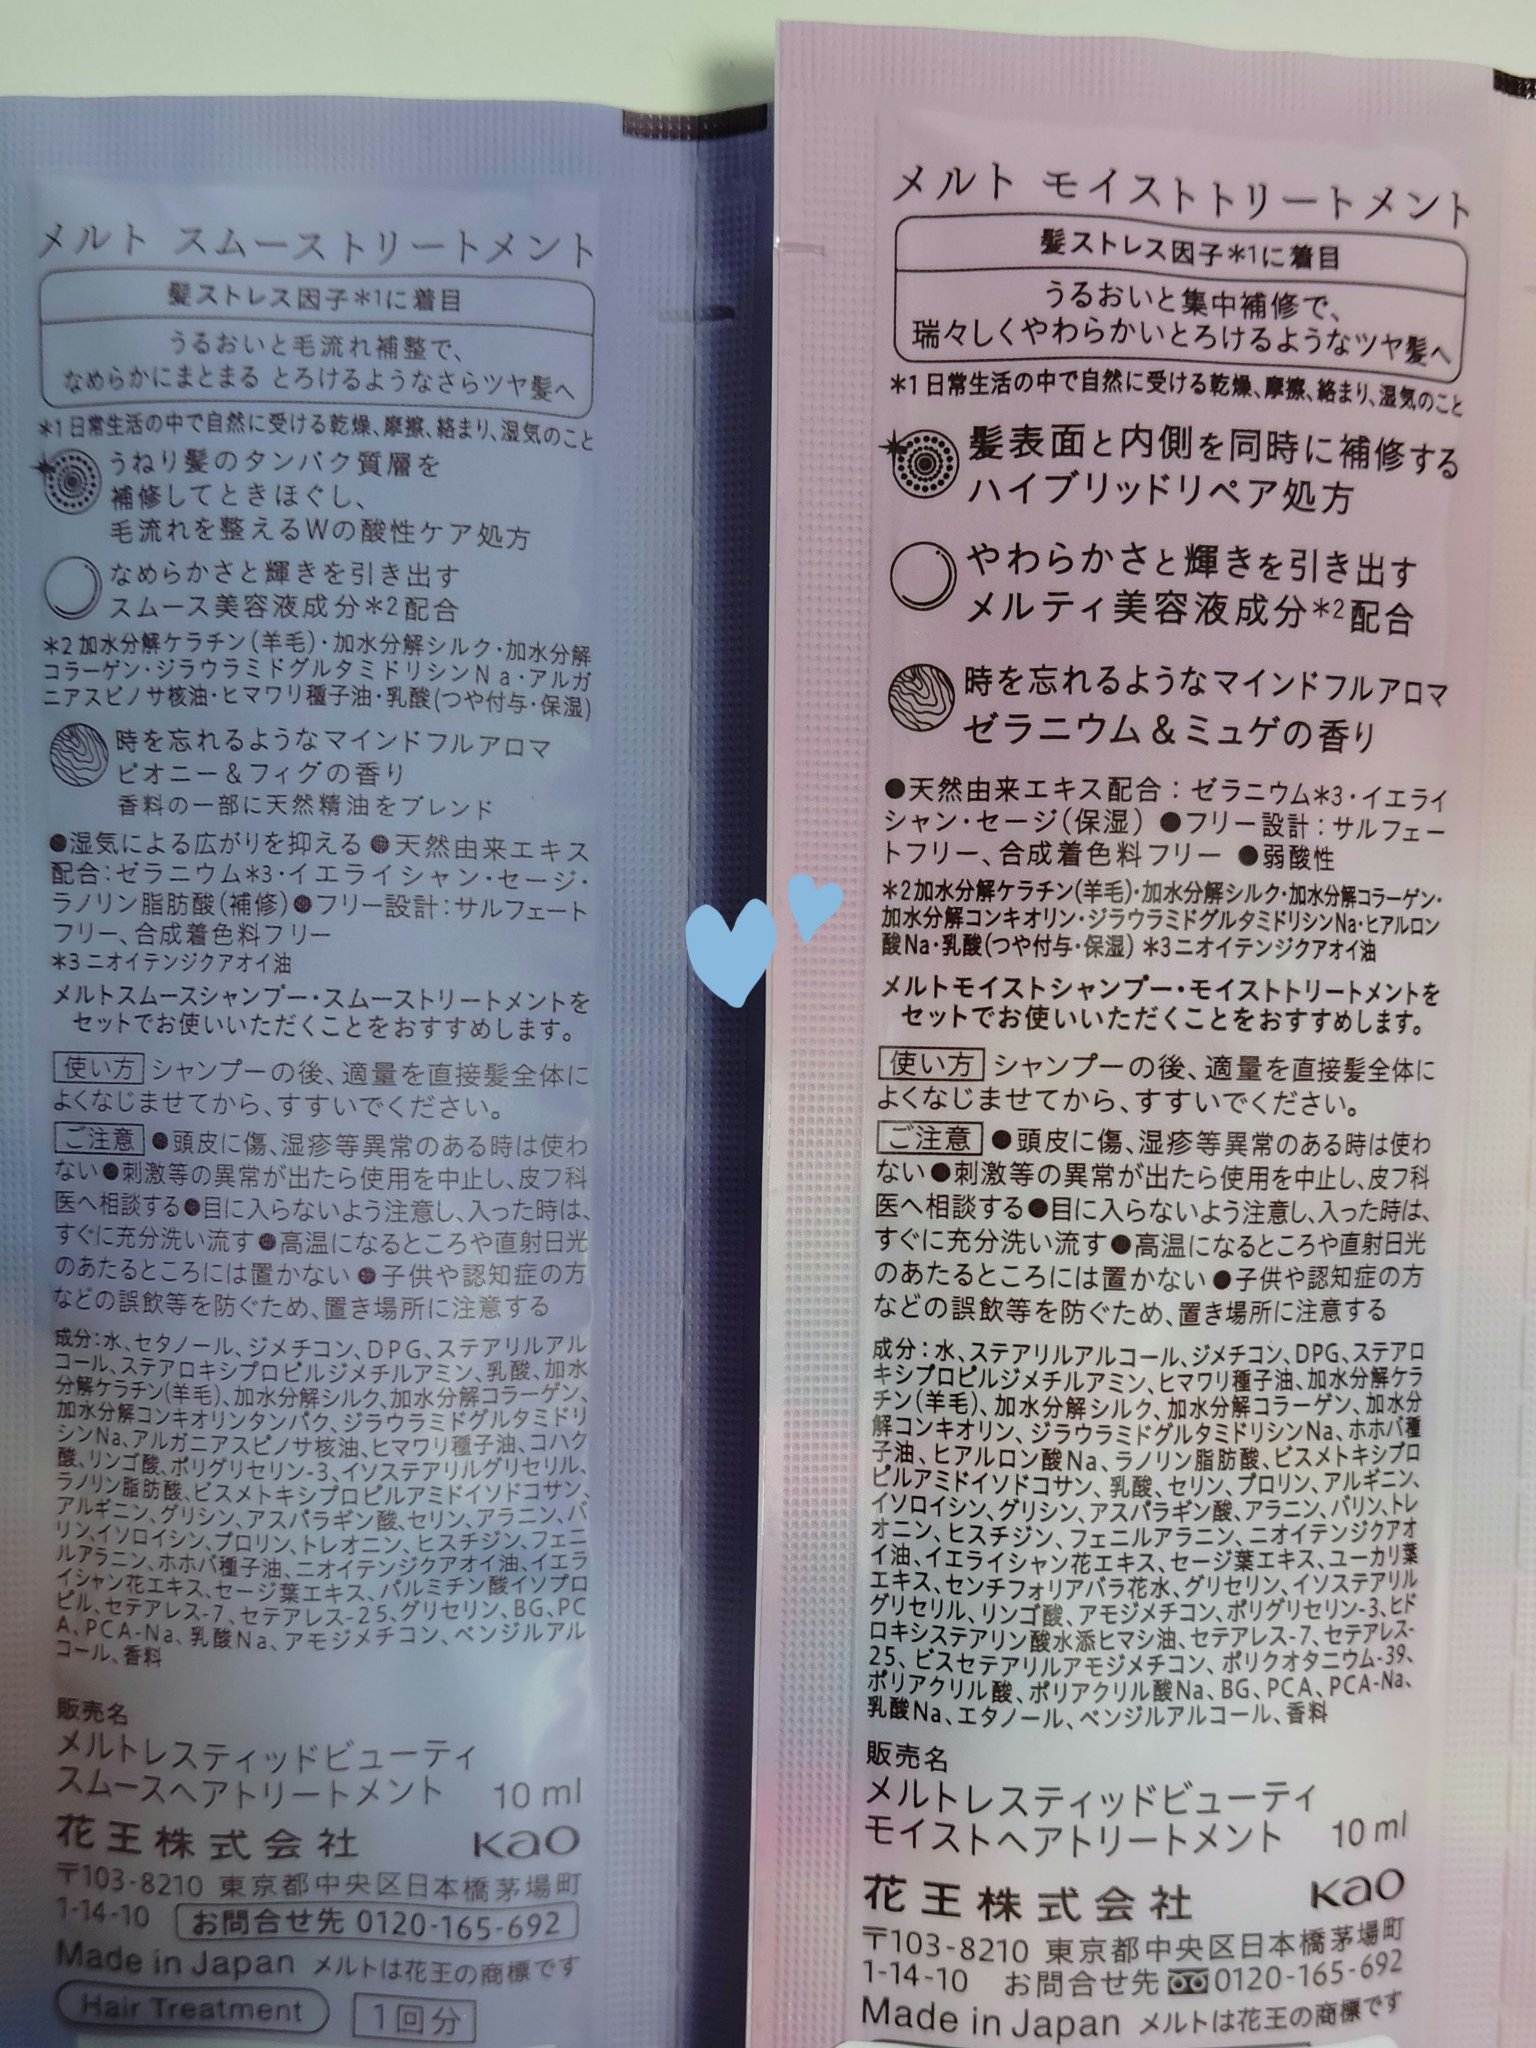 メルト スムーストリートメント
髪ストレス因子*1に着目
うるおいと毛流れ補整で、
なめらかにまとまる とろけるようなさらツヤ髪へ
*1 日常生活の中で自然に受ける乾燥、摩擦、絡まり、湿気のこと
うねり髪のタンパク質層を
補修してときほぐし、
毛流れを整えるWの酸性ケア処方
なめらかさと輝きを引き出す
スムース美容液成分*2配合
*2 加水分解ケラチン(羊毛)・加水分解シルク・加水分解
コラーゲン・ジラウラミドグルタミドリシンNa・アルガ
ニアスピノサ核油・ヒマワリ種子油・乳酸(つや付与・保湿)
時を忘れるようなマインドフルアロマ
ピオニー&フィグの香り
香料の一部に天然精油をブレンド
●湿気による広がりを抑える ●天然由来エキス
配合:ゼラニウム*3・イエライシャン・セージ・
ラノリン脂肪酸(補修)●フリー設計:サルフェート
フリー、合成着色料フリー
*3 ニオイテンジクアオイ油
メルトスムースシャンプー・スムーストリートメントを
セットでお使いいただくことをおすすめします。
使い方 シャンプーの後、適量を直接髪全体に
よくなじませてから、すすいでください。
ご注意 ●頭皮に傷、湿疹等異常のある時は使わ
ない●刺激等の異常が出たら使用を中止し、皮フ科
医へ相談する●目に入らないよう注意し、入った時は、
すぐに充分洗い流す●高温になるところや直射日光
のあたるところには置かない ●子供や認知症の方
などの誤飲等を防ぐため、置き場所に注意する
成分:水、セタノール、ジメチコン、DPG、ステアリルアル
コール、ステアロキシプロピルジメチルアミン、乳酸、加水
分解ケラチン(羊毛)、加水分解シルク、加水分解コラーゲン、
加水分解コンキオリンタンパク、ジラウラミドグルタミドリ
シンNa、アルガニアスピノサ核油、ヒマワリ種子油、コハク
酸、リンゴ酸、ポリグリセリン-3、イソステアリルグリセリル、
ラノリン脂肪酸、ビスメトキシプロピルアミドイソドコサン、
アルギニン、グリシン、アスパラギン酸、セリン、アラニン、バ
リン、イソロイシン、プロリン、トレオニン、ヒスチジン、フェニ
ルアラニン、ホホバ種子油、ニオイテンジクアオイ油、イエラ
イシャン花エキス、セージ葉エキス、パルミチン酸イソプロ
ピル、セテアレス-7、セテアレス-25、グリセリン、BG、PC
A、PCA-Na、乳酸Na、アモジメチコン、ベンジルアル
コール、香料
販売名
メルトレスティッドビューティ
スムースヘアトリートメント 10 ml
花王株式会社 Kao
〒103-8210 東京都中央区日本橋茅場町
1-14-10 お問合せ先 0120-165-692
Made in Japan メルトは花王の商標です
Hair Treatment 1回分
メルト モイストトリートメント
髪ストレス因子*1に着目
うるおいと集中補修で、
瑞々しくやわらかいとろけるようなツヤ髪へ
*1 日常生活の中で自然に受ける乾燥、摩擦、絡まり、湿気のこと
髪表面と内側を同時に補修する
ハイブリッドリペア処方
やわらかさと輝きを引き出す
メルティ美容液成分*2配合
時を忘れるようなマインドフルアロマ
ゼラニウム&ミュゲの香り
●天然由来エキス配合:ゼラニウム*3・イエライ
シャン・セージ(保湿) ●フリー設計:サルフェー
トフリー、合成着色料フリー ●弱酸性
*2加水分解ケラチン(羊毛)・加水分解シルク・加水分解コラーゲン・
加水分解コンキオリン・ジラウラミドグルタミドリシンNa・ヒアルロン
酸Na・乳酸(つや付与・保湿) *3ニオイテンジクアオイ油
メルトモイストシャンプー・モイストトリートメントを
セットでお使いいただくことをおすすめします。
使い方 シャンプーの後、適量を直接髪全体に
よくなじませてから、すすいでください。
ご注意 ●頭皮に傷、湿疹等異常のある時は使わ
ない●刺激等の異常が出たら使用を中止し、皮フ科
医へ相談する●目に入らないよう注意し、入った時は、
すぐに充分洗い流す●高温になるところや直射日光
のあたるところには置かない●子供や認知症の方
などの誤飲等を防ぐため、置き場所に注意する
成分:水、ステアリルアルコール、ジメチコン、DPG、ステアロ
キシプロピルジメチルアミン、ヒマワリ種子油、加水分解ケラ
チン(羊毛)、加水分解シルク、加水分解コラーゲン、加水分
解コンキオリン、ジラウラミドグルタミドリシンNa、ホホバ種
子油、ヒアルロン酸Na、ラノリン脂肪酸、ビスメトキシプロ
ピルアミドイソドコサン、乳酸、セリン、プロリン、アルギニン、
イソロイシン、グリシン、アスパラギン酸、アラニン、バリン、トレ
オニン、ヒスチジン、フェニルアラニン、ニオイテンジクアオ
イ油、イエライシャン花エキス、セージ葉エキス、ユーカリ葉
エキス、センチフォリアバラ花水、グリセリン、イソステアリル
グリセリル、リンゴ酸、アモジメチコン、ポリグリセリン-3、ヒド
ロキシステアリン酸水添ヒマシ油、セテアレス-7、セテアレス-
25、ビスセテアリルアモジメチコン、ポリクオタニウム-39、
ポリアクリル酸、ポリアクリル酸Na、BG、PCA、PCA-Na、
乳酸Na、エタノール、ベンジルアルコール、香料
販売名
メルトレスティッドビューティ
モイストヘアトリートメント 10 ml
花王株式会社 Kao
〒103-8210 東京都中央区日本橋茅場町
1-14-10 お問合せ先 0120-165-692
Made in Japan メルトは花王の商標です